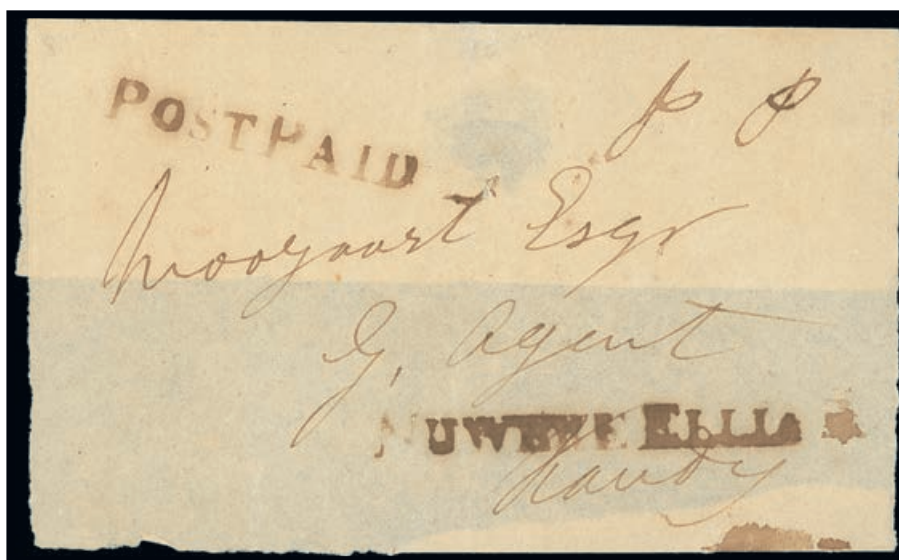 POSTPAID
P P
Mooyaart Esqr
G, Agent
NUWERE ELLIA
Kandy